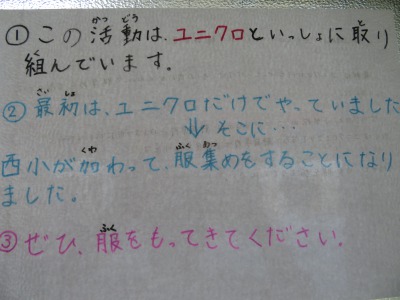 ①この活動は、ユニクロといっしょに取り
組んでいます。
②最初は、ユニクロだけでやっていました
⇓そこに…
西小が加わって、服集めをすることになり
ました。
③ぜひ、服をもってきてください。